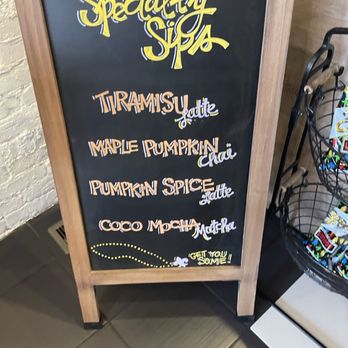 Specialty
Sips
TIRAMISU Latte
MAPLE PUMPKIN Chai
PUMPKIN SPICE Latte
COCO MOCHA Matcha
GET YOU
SOME!